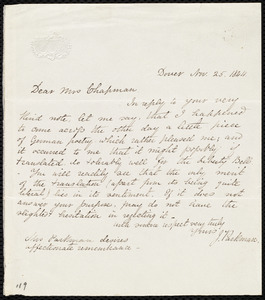 Dover Nov. 25. 1844
Dear Mrs Chapman
In reply to your very
kind note, let me say, that I happened
to come across the other day a little piece
of German poetry which rather pleased me; and
it occurred to me that it might possibly, if
translated, do tolerably well for the Liberty Bell
- You will readily see that the only merit
of the translation (apart from its being quite
literal) lies in its devotement. If it does not
answer your purpose, pray do not have the
slightest hesitation in rejecting it
with sincere respect very truly
Yours
J. Parkman.
Mrs Parkman desires
affectionate remembrance -
119